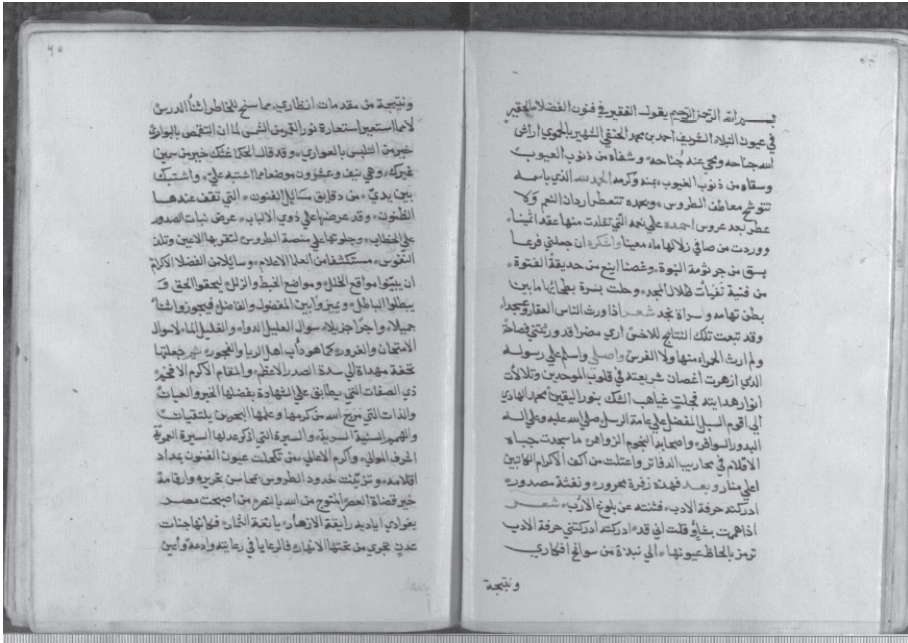 بسم الله الرحمن الرحيم يقول الفقير في فنون الفضلاء الحقير
في عيون النبلاء الشريف احمد بن محمد الحنفي الشهير بالحموي اراش
الله جناحه ومحى عنه جُناحه وشفاه من ذنوب العيوب
وسقاه من ذَنوب الغيوب بمنه وكرمه الحمد لله الذي باسمه
تتوشح معاطف الطروس وبحمده تتعطر اردان النعم ولا
عطر بعد عروس احمده علي نعمه التي تقلدت منها عقدا ثمينا
ووردت من صافي زلالها ماء معينا واشكره ان جعلني فرعا
بسق من جرثومة النبوة وغصنا اينع من حديقة الفتوة
من فتية تفيأت ظلال المجد وحلت بسرة بطحائها ما بين
بطن تهامه وسراة نجد شعر اذا ورث الناس العقار وعسجدا
وقد تبعت تلك النتائج للاخرى اري مضرا قد ورثتني فصاحة
ولم ارث الحمراء منها ولا الفرس واصلي واسلم علي رسوله
الذي ازهرت اغصان شريعته في قلوب الموحدين وتلالات
انوار هدايته فجلت غياهب الشك بنور اليقين محمد الهادي
الي اقوم السبل المفضل علي عامة الرسل صلي الله عليه وعلي اله
البدور السوافر واصحابه النجوم الزواهر ما سجدت جباه
الاقلام في محاريب الدفاتر واعتلت من اكف الاكرام الكاتبين
اعلي منار وبعد فهذه زفرة محرور ونفثة مصدور
ادركته حرفة الادب فثنته عن بلوغ الارب شعر
اذا هممت قلت اني قد ادركته ادركتني حرفة الادب
ترمز بالحاظ عيونها الي نبذة من سوانح افكاري
ونتيجة
ونتيجة من مقدمات انظاري مما سنح للخاطر اثناء الدرس
لا مما استعير استعارة نور القمر من الشمس لما ان التقمص بالبوارى
خير من التلبس بالعواري وقد قالت الحكما غثك خير من سمين
غيرك وهي نيف وعشرون موضعا مما اشتبه علي واشتبك
بين يدي من دقايق مسائل الفنون التي تقف عندها
الظنون وقد عرضتها علي ذوي الالباب عرض نبات الصدور
علي الخطاب وجلوتها علي منصة الطروس لتقر بها الاعين وتلذ
النفوس مستكشفا من العلما الاعلام وسايلا من الفضلا الاكرام
ان يبينوا مواقع الخلل ومواضع الخبط والزلل ليحقوا الحق و
يبطلوا الباطل ويميزوا بين المفضول والفاضل فيحوزوا ثناء
جميلا واجرا جزيلا سوال العليل الدواء والغليل الماء لا سوال
الامتحان والغرور كما هو دأب اهل الريا والفجور ثم جعلتها
تحفة مهداة الي سدة الصدر الاعظم والمقام الاكرم الافخم
ذي الصفات التي يطابق علي الشهادة بفضلها الخبر والعيان
والذات التي مرج الله من كرمها وعلمها البحرين يلتقيان
والشيم السنية السرية والسيرة التي اذكر عدلها السيرة العمرية
اشرف الموالي واكرم الاعالي من تكحلت عيون الفنون بمداد
اقلامه وتزينت خدود الطروس بمحاسن تحريره وارقامه
خير قضاة العصر المتوج من الله بالنصر من اصبحت مصر
بغوادي اياديه رايقة الازهار يانعة الثمار فكانها جنات
عدن تجري من تحتها الانهار فالرعايا في رعايته وادعة وأعين